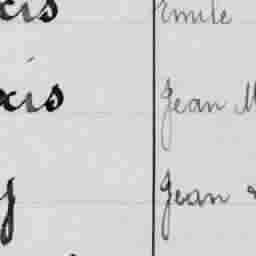 xis Emile
xis Jean M
y Jean